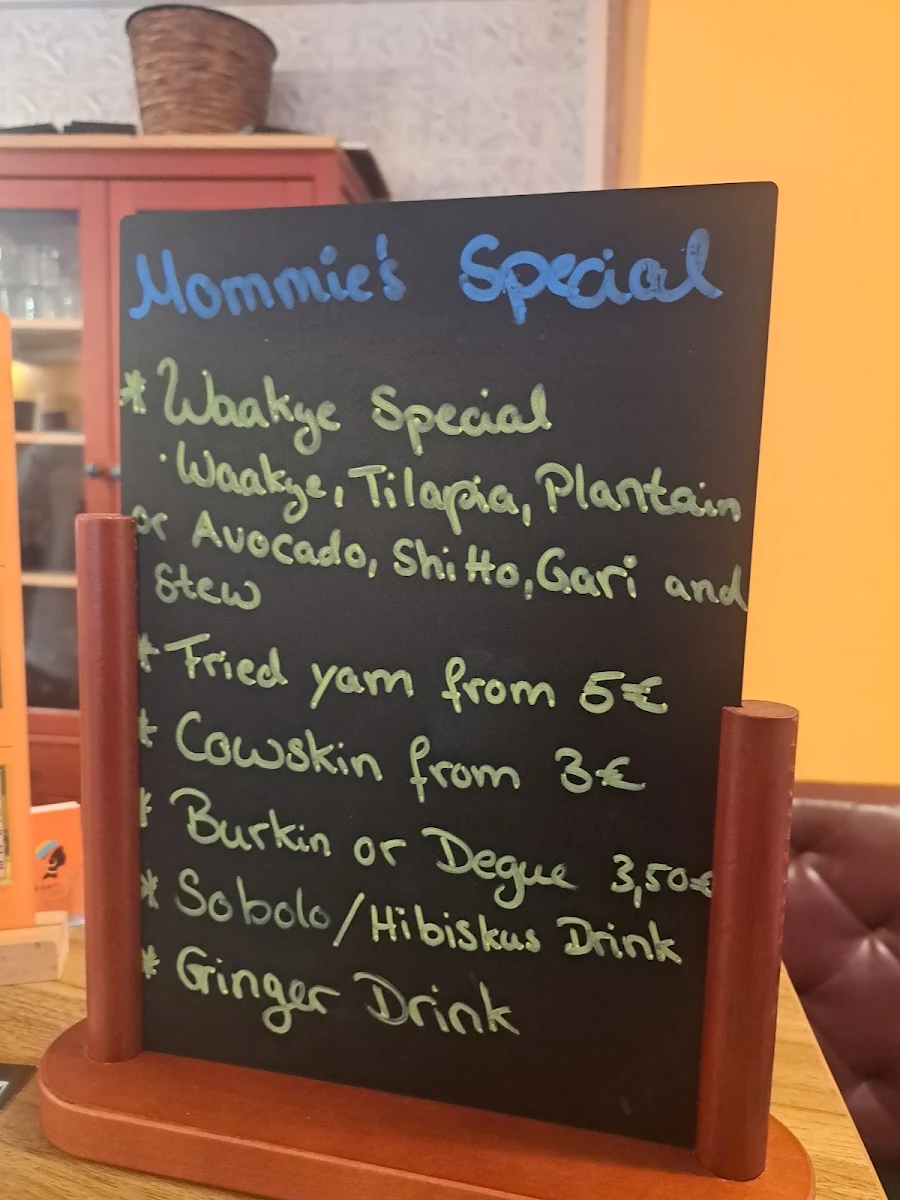 Mommie's Special
* Waakye Special
· Waakye, Tilapia, Plantain
or Avocado, Shitto, Gari and
Stew
* Fried yam from 5€
* Cowskin from 3€
* Burkin or Degue 3,50€
* Sobolo/Hibiskus Drink
* Ginger Drink